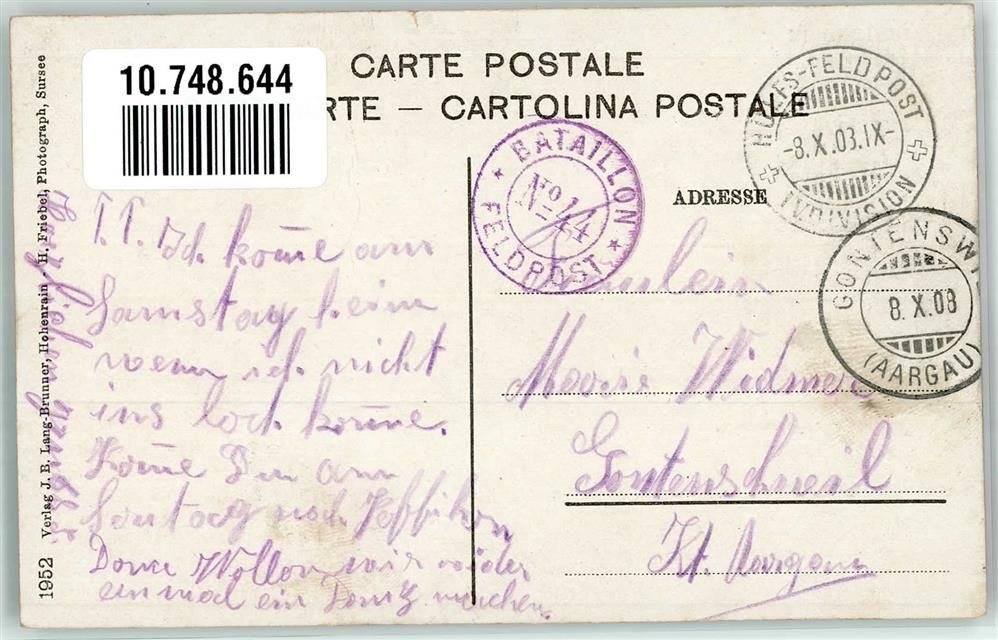 CARTE POSTALE
10.748.644
RTE — CARTOLINA POSTALE
HÜLFS-FELDPOST
-8.X.08.IX-
IV. DIVISION
BATAILLON
No 44
FELDPOST
ADRESSE
GONTENSWIL
8.X.08
(AARGAU)
T.T. Ich kome am
Samstag heim
wenn ich nicht
ins loch kome.
Kome Du am
Sontag nach
Dann Wollen wir wider
einmal ein Tantz machen.
Fräulein
Marie Widmer
Gontenschwil
Kt. Aargau
1952 Verlag J. B. Lang-Brunner, Hohenrain - H. Friebel, Photograph, Sursee